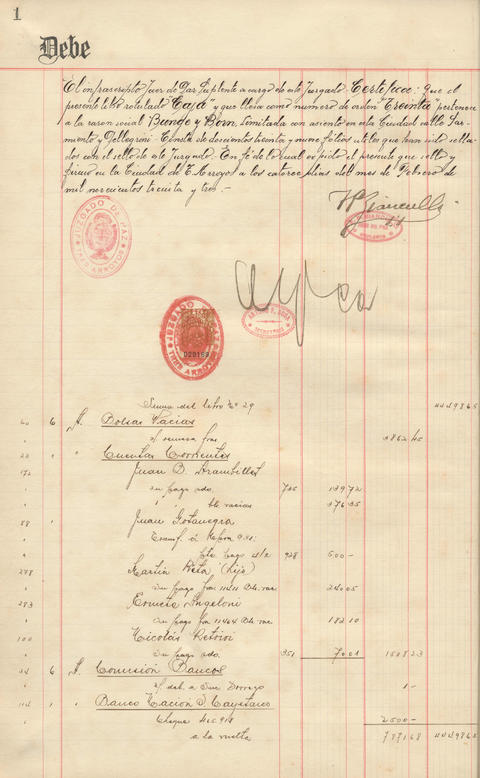 1
Debe
El infrascripto Juez de Paz Suplente a cargo de este Juzgado Certifica: Que el
presente libro rotulado "Caja" y que lleva como numero de orden "Treinta" pertenece
a la razon social Bunge y Born Limitada con asiento en esta Ciudad calle Sar-
miento y Pellegrini. Consta de doscientos treinta y nueve folios utiles que han sido sella-
dos con el sello de este Juzgado. En fé de lo cual expido el presente que sello y
firmo en la Ciudad de T. Arroyos a los catorce dias del mes de Febrero de
mil novecientos treinta y tres.-
JUZGADO DE PAZ
TRES ARROYOS
JUZGADO DE PAZ
TRES ARROYOS
020169
SECRETARIO
Suma del libro No 29
6 A. Bolsas Vacias
s/ remesa fras 3862 45
" Cuentas Corrientes
172 Juan B. Arambillet
su pago ado. 725 13972
" " bls vacias 37635
88 Juan
Transf. á
pago 928 500-
278 Martin Reta (hijo)
su pago fra 11411 bls. vac 24005
283 Ernesto Angeloni
su pago fra 11464 bls. vac 18210
100 Nicolás
su pago ado. 351 7001 150823
6 A. Comisión Bancos
s/ deb. a Suc Dorrego 1-
114 " Banco Nación S. Cayetano
Cheque 2500-
a la vuelta 787168